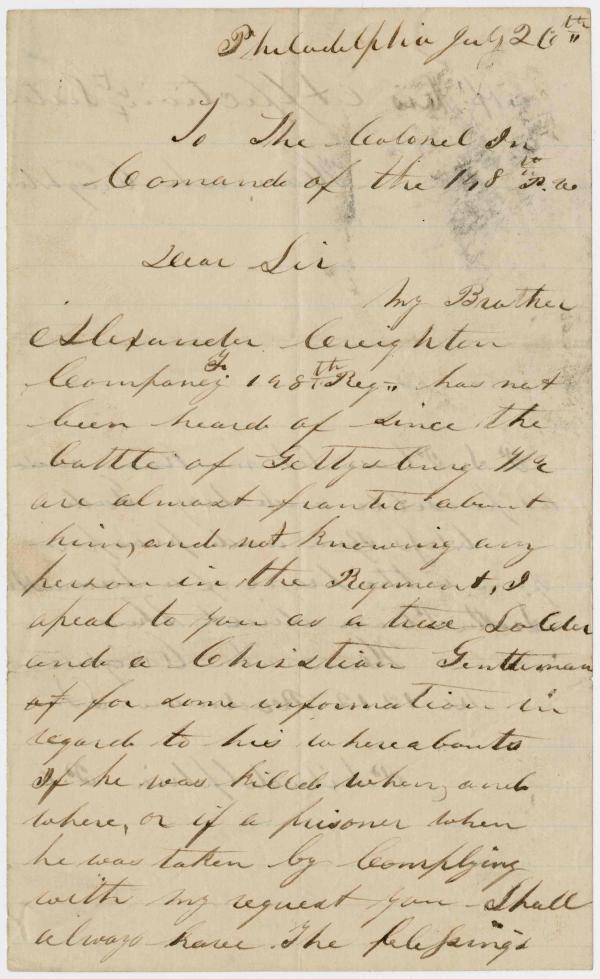 Philadelphia July 26th"
To The Colonel In
Comand of the 148th P. v
Dear Sir
My Brother
Alexander Creighton
Company F. 148th Reg" has not
been heard of since the
battle of Gettysburg We
are almost frantic about
him, and not knowing any
person in the Regiment, I
apeal to you as a true Solder
and a Christian Gentleman
for some information in
regard to his whereabouts
If he was killed when, and
where, or if a prisoner when
he was taken by Complying
with my request you Shall
always have The blessings